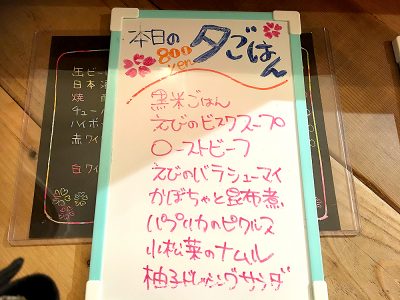 本日の
800
yen
夕ごはん
黒米ごはん
えびのビスクスープ
ローストビーフ
えびのバラシューマイ
かぼちゃと昆布煮
パプリカのピクルス
小松菜のナムル
柚子ドレッシングサラダ
缶ビー
日本酒
焼
チュー
ハイボ
赤ワイ
白ワイ